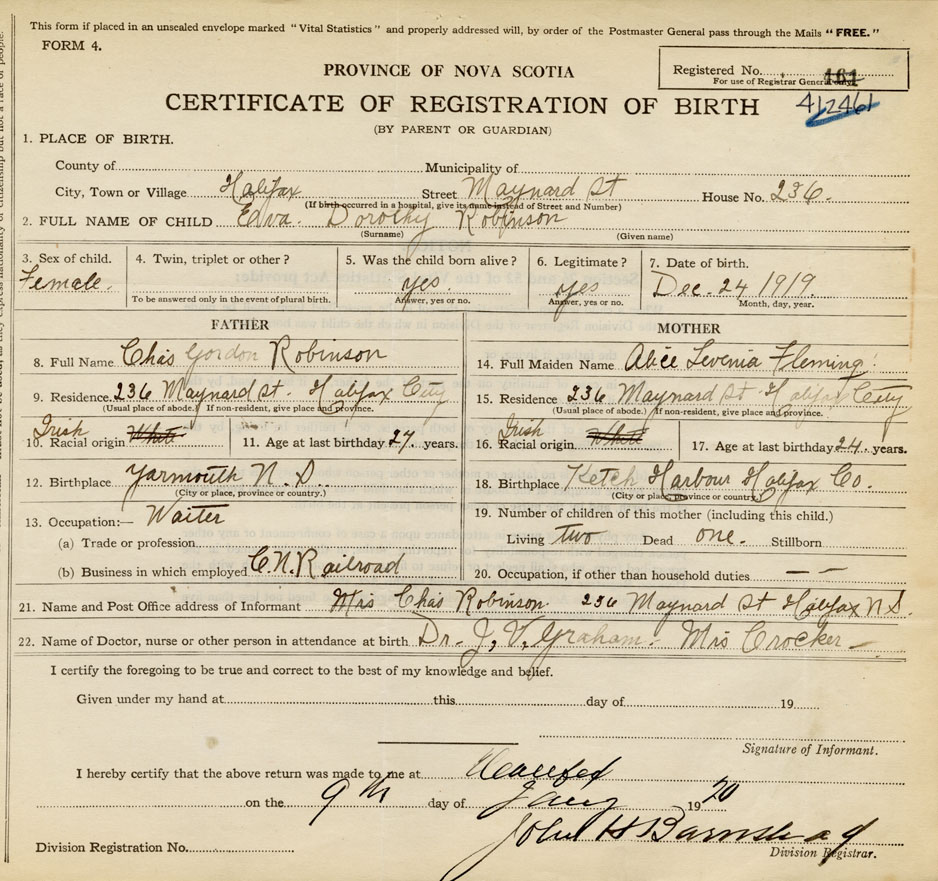 This form if placed in an unsealed envelope marked "Vital Statistics" and properly addressed will, by order of the Postmaster General pass through the Mails "FREE."
FORM 4.
PROVINCE OF NOVA SCOTIA
Registered No. 161
For use of Registrar General only.
CERTIFICATE OF REGISTRATION OF BIRTH
(BY PARENT OR GUARDIAN)
1. PLACE OF BIRTH.
County of Municipality of
City, Town or Village Halifax Street Maynard St House No. 236.
(If birth occurred in a hospital, give its name instead of Street and Number)
2. FULL NAME OF CHILD Edva. Dorothy Robinson
(Surname) (Given name)
3. Sex of child. Female.
4. Twin, triplet or other?
To be answered only in the event of plural birth.
5. Was the child born alive? yes.
Answer, yes or no.
6. Legitimate? yes
Answer, yes or no.
7. Date of birth. Dec. 24 1919.
Month, day, year.
FATHER
8. Full Name Chas Gordon Robinson
9. Residence. 236 Maynard St. Halifax City
(Usual place of abode.) If non-resident, give place and province.
Irish
10. Racial origin White
11. Age at last birthday 27 years.
12. Birthplace Yarmouth N.S.
(City or place, province or country.)
13. Occupation:— Waiter
(a) Trade or profession
(b) Business in which employed C.N. Railroad
MOTHER
14. Full Maiden Name Alice Levenia Fleming
15. Residence 236 Maynard St. Halifax City
(Usual place of abode.) If non-resident, give place and province.
Irish
16. Racial origin White
17. Age at last birthday 24 years.
18. Birthplace Ketch Harbour Halifax Co.
(City or place, province or country.)
19. Number of children of this mother (including this child.)
Living two Dead one. Stillborn
20. Occupation, if other than household duties — —
21. Name and Post Office address of Informant Mrs Chas Robinson 236 Maynard St Halifax N S
22. Name of Doctor, nurse or other person in attendance at birth Dr. J. V. Graham. Mrs Crocker —
I certify the foregoing to be true and correct to the best of my knowledge and belief.
Given under my hand at this day of 19
Signature of Informant.
I hereby certify that the above return was made to me at
on the 9th day of Jany 1920
John H Barnstead
Division Registration No. Division Registrar.